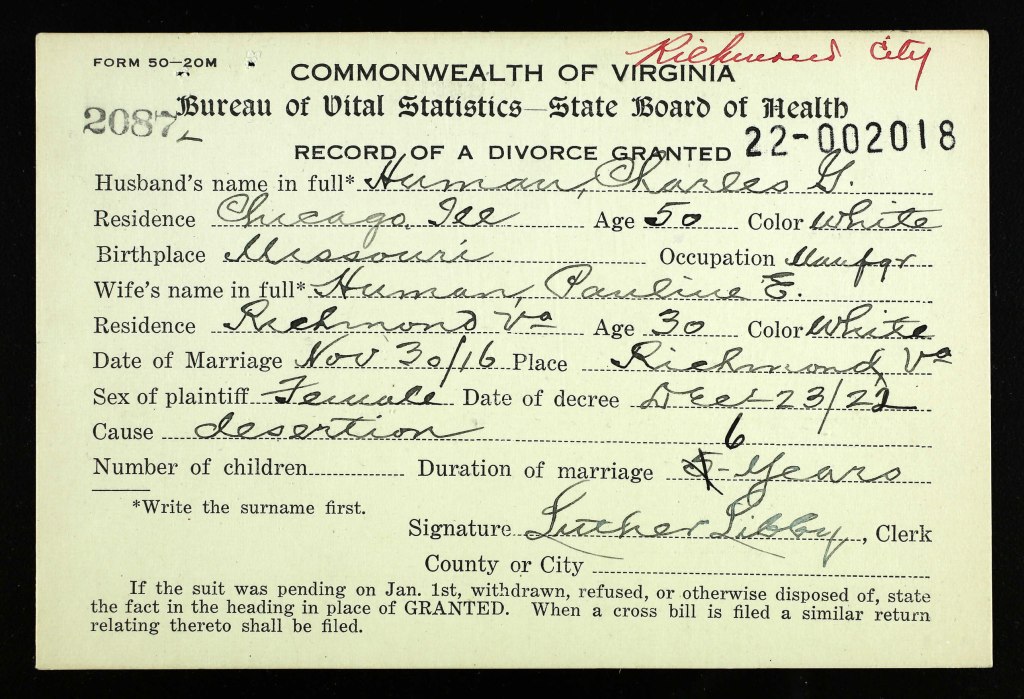 Richmond City
FORM 50—20M
COMMONWEALTH OF VIRGINIA
2087 Bureau of Vital Statistics—State Board of Health
22-002018
RECORD OF A DIVORCE GRANTED
Husband's name in full* Human, Charles G.
Residence Chicago, Ill Age 50 Color White
Birthplace Missouri Occupation Manfgr
Wife's name in full* Human, Pauline E.
Residence Richmond Va Age 30 Color White
Date of Marriage Nov 30/16 Place Richmond, Va
Sex of plaintiff Female Date of decree Dec 23/22
Cause desertion
Number of children Duration of marriage 6 Years
*Write the surname first.
Signature Luther Libby, Clerk
County or City
If the suit was pending on Jan. 1st, withdrawn, refused, or otherwise disposed of, state
the fact in the heading in place of GRANTED. When a cross bill is filed a similar return
relating thereto shall be filed.